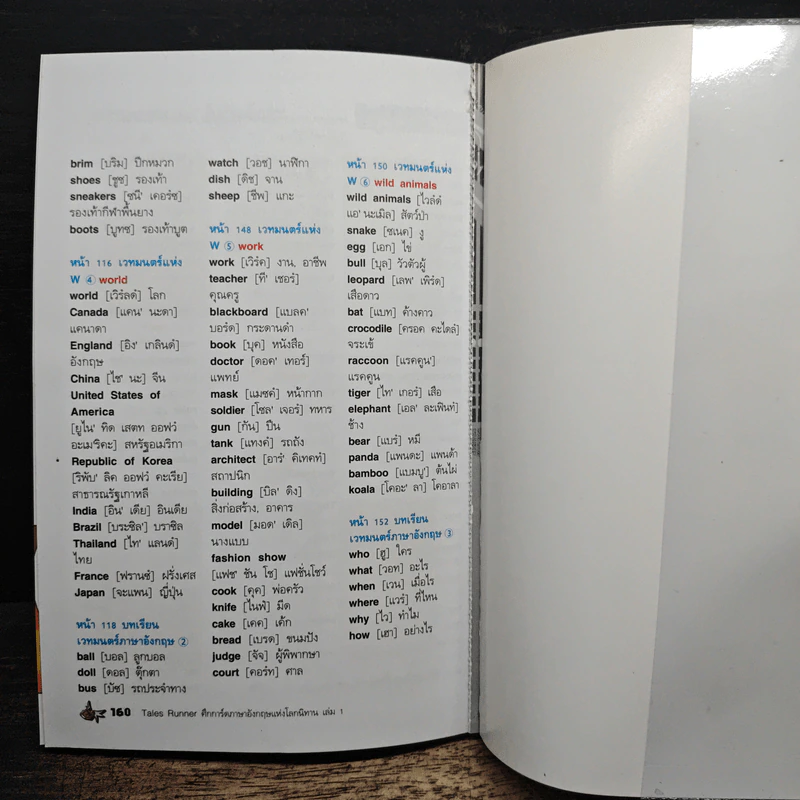 brim [บริม] ปีกหมวก
shoes [ชูซ] รองเท้า
sneakers [ซนี' เคอร์ซ]
รองเท้ากีฬาพื้นยาง
boots [บูทซ] รองเท้าบูต
หน้า 116 เวทมนตร์แห่ง
W ④ world
world [เวิร์ลด์] โลก
Canada [แคน' นะดา]
แคนาดา
England [อิง' เกลินด์]
อังกฤษ
China [ไช' นะ] จีน
United States of
America
[ยูไน' ทิด เสตท ออฟว์
อะเม'ริคะ] สหรัฐอเมริกา
Republic of Korea
[ริพับ' ลิค ออฟว์ คะเรีย]
สาธารณรัฐเกาหลี
India [อิน' เดีย] อินเดีย
Brazil [บระซิล'] บราซิล
Thailand [ไท' แลนด์]
ไทย
France [ฟรานซ์] ฝรั่งเศส
Japan [จะแพน] ญี่ปุ่น
หน้า 118 บทเรียน
เวทมนตร์ภาษาอังกฤษ ②
ball [บอล] ลูกบอล
doll [ดอล] ตุ๊กตา
bus [บัซ] รถประจำทาง
watch [วอช] นาฬิกา
dish [ดิช] จาน
sheep [ชีพ] แกะ
หน้า 148 เวทมนตร์แห่ง
W ⑤ work
work [เวิร์ค] งาน, อาชีพ
teacher [ที' เชอร์]
คุณครู
blackboard [แบลค'
บอร์ด] กระดานดำ
book [บุค] หนังสือ
doctor [ดอค' เทอร์]
แพทย์
mask [แมซค์] หน้ากาก
soldier [โซล' เจอร์] ทหาร
gun [กัน] ปืน
tank [แทงค์] รถถัง
architect [อาร์' คิเทคท์]
สถาปนิก
building [บิล' ดิง]
สิ่งก่อสร้าง, อาคาร
model [มอด' เดิล]
นางแบบ
fashion show
[แฟช' ชัน โช] แฟชั่นโชว์
cook [คุค] พ่อครัว
knife [ไนฟ์] มีด
cake [เคค] เค้ก
bread [เบรด] ขนมปัง
judge [จัจ] ผู้พิพากษา
court [คอร์ท] ศาล
หน้า 150 เวทมนตร์แห่ง
W ⑥ wild animals
wild animals [ไวล์ด์
แอ' นะเมิล] สัตว์ป่า
snake [ซเนค] งู
egg [เอก] ไข่
bull [บุล] วัวตัวผู้
leopard [เลพ' เพิร์ด]
เสือดาว
bat [แบท] ค้างคาว
crocodile [ครอค คะไดล์]
จระเข้
raccoon [แรคคูน']
แรคคูน
tiger [ไท' เกอร์] เสือ
elephant [เอล' ละเฟินท์]
ช้าง
bear [แบร์] หมี
panda [แพนดะ] แพนด้า
bamboo [แบมบู'] ต้นไผ่
koala [โคอะ' ลา] โคอาลา
หน้า 152 บทเรียน
เวทมนตร์ภาษาอังกฤษ ③
who [ฮู] ใคร
what [วอท] อะไร
when [เวน] เมื่อไร
where [แวร์] ที่ไหน
why [ไว] ทำไม
how [เฮา] อย่างไร
160 Tales Runner ศึกการ์ดภาษาอังกฤษแห่งโลกนิทาน เล่ม 1